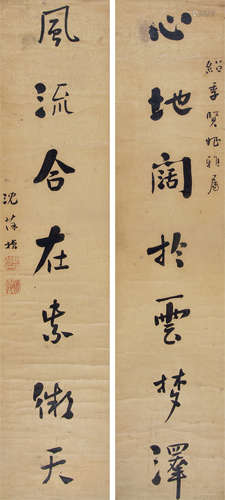 紹季賢姪雅屬
心地闊於雲夢澤
風流合在紫微天
沈葆楨